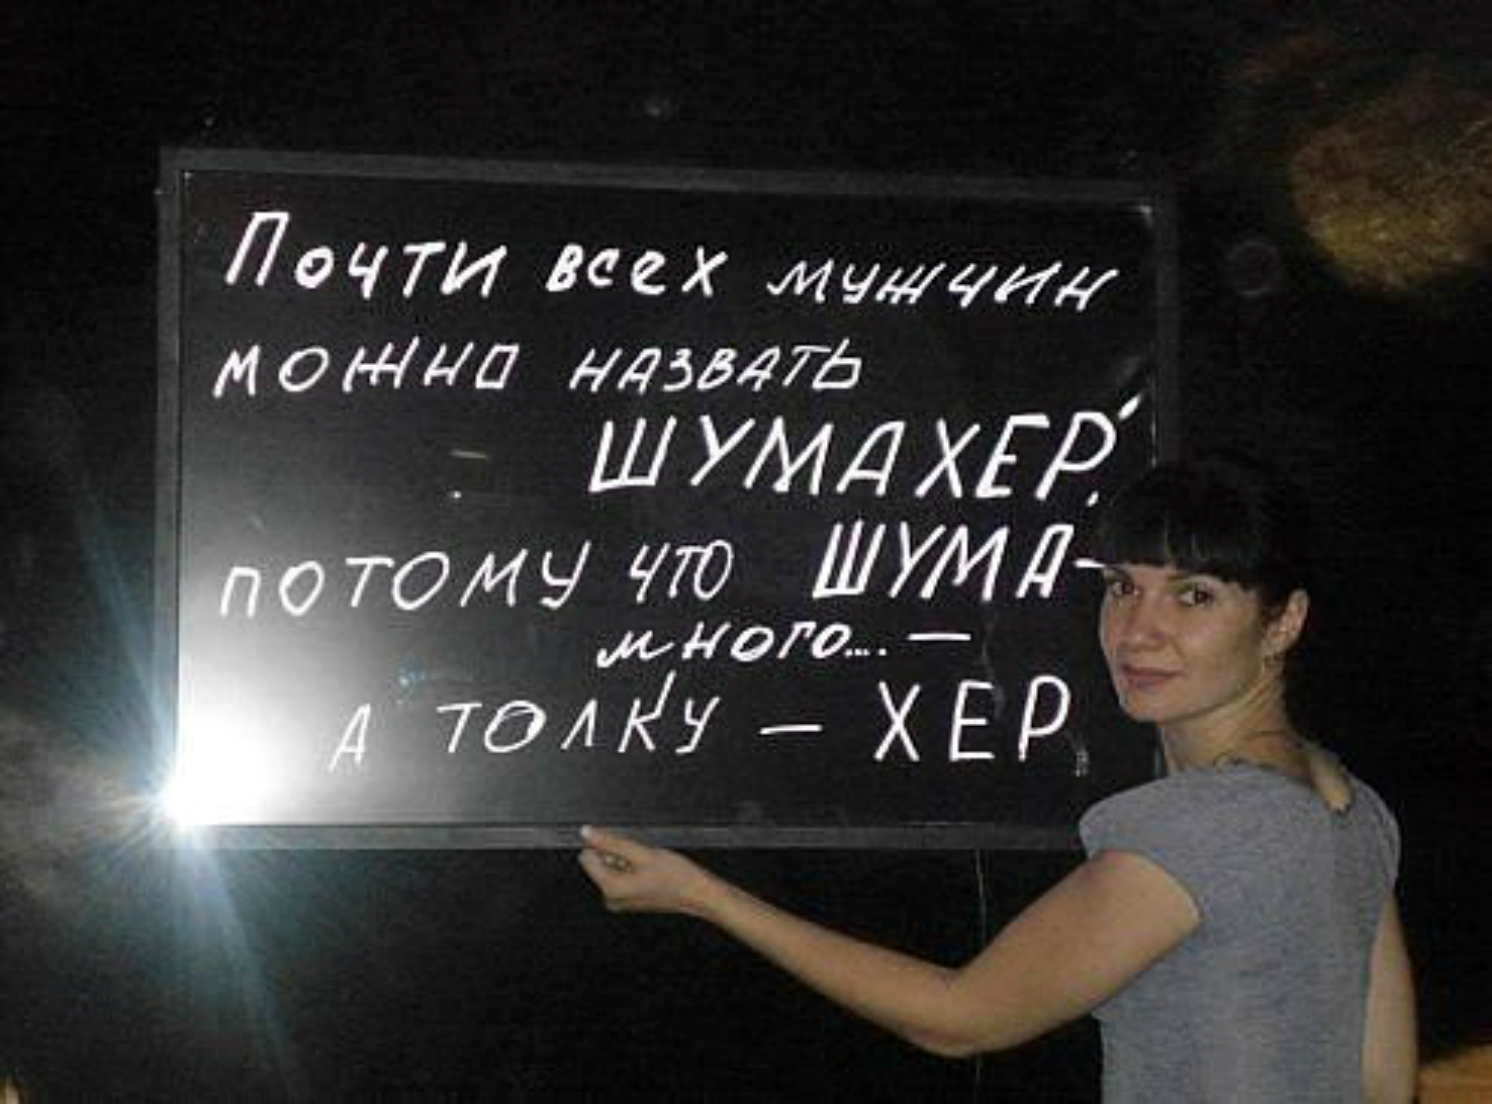 Почти всех мужчин
можно назвать
ШУМАХЕР,
потому что ШУМА-
много... —
А толку — ХЕР